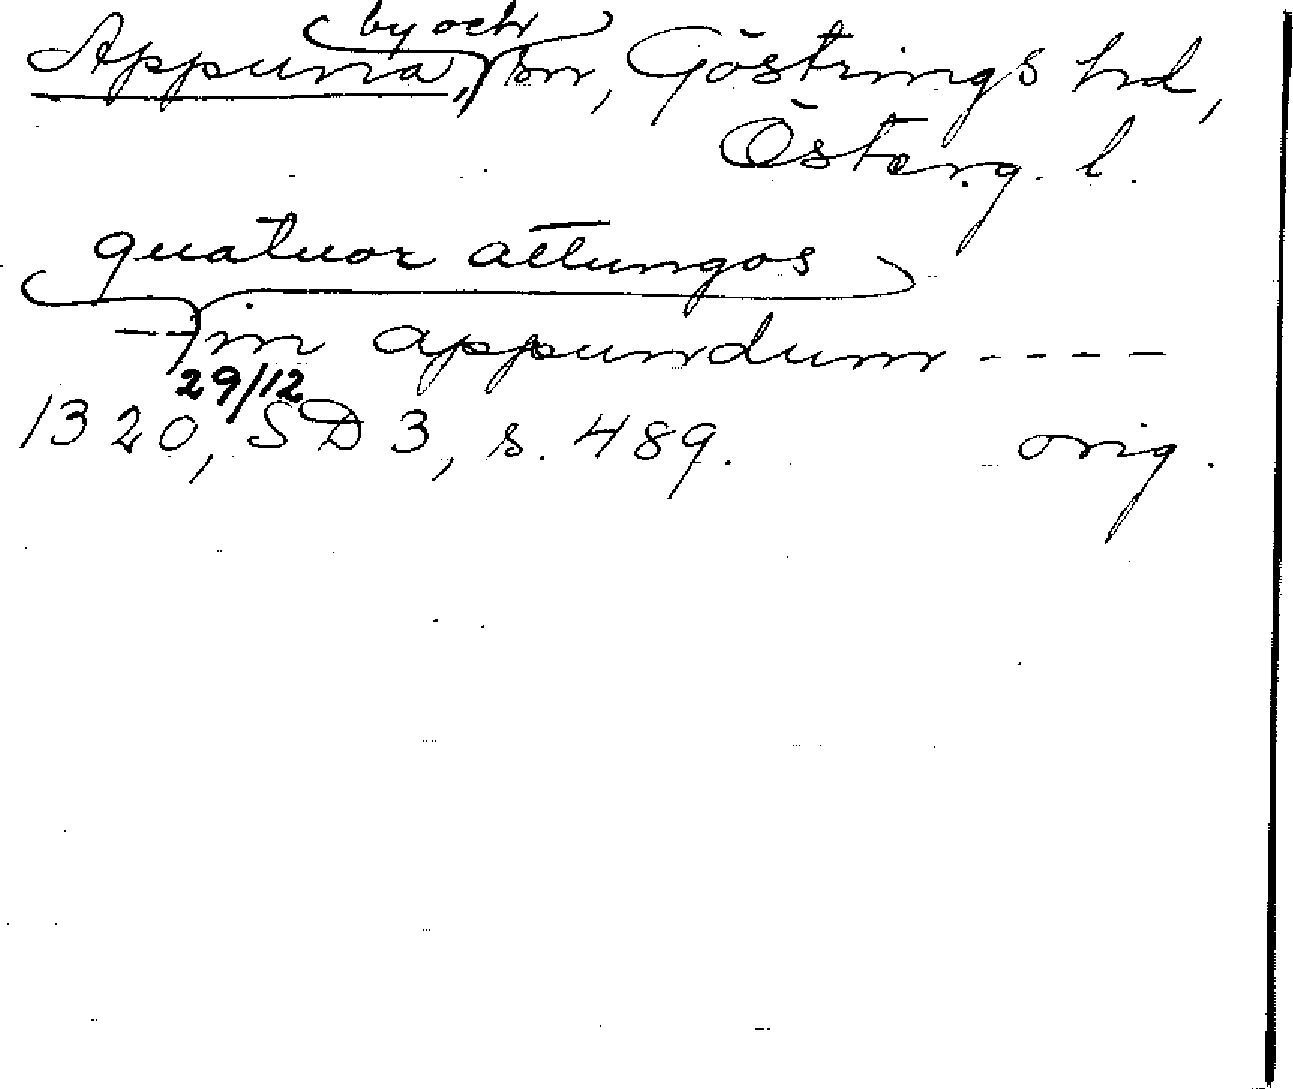 by och
Appuna, sn, Göstrings hd,
Österg. l.
quatuor attungos
-- in appundum ----
29/12
1320, SD 3, s. 489. orig.